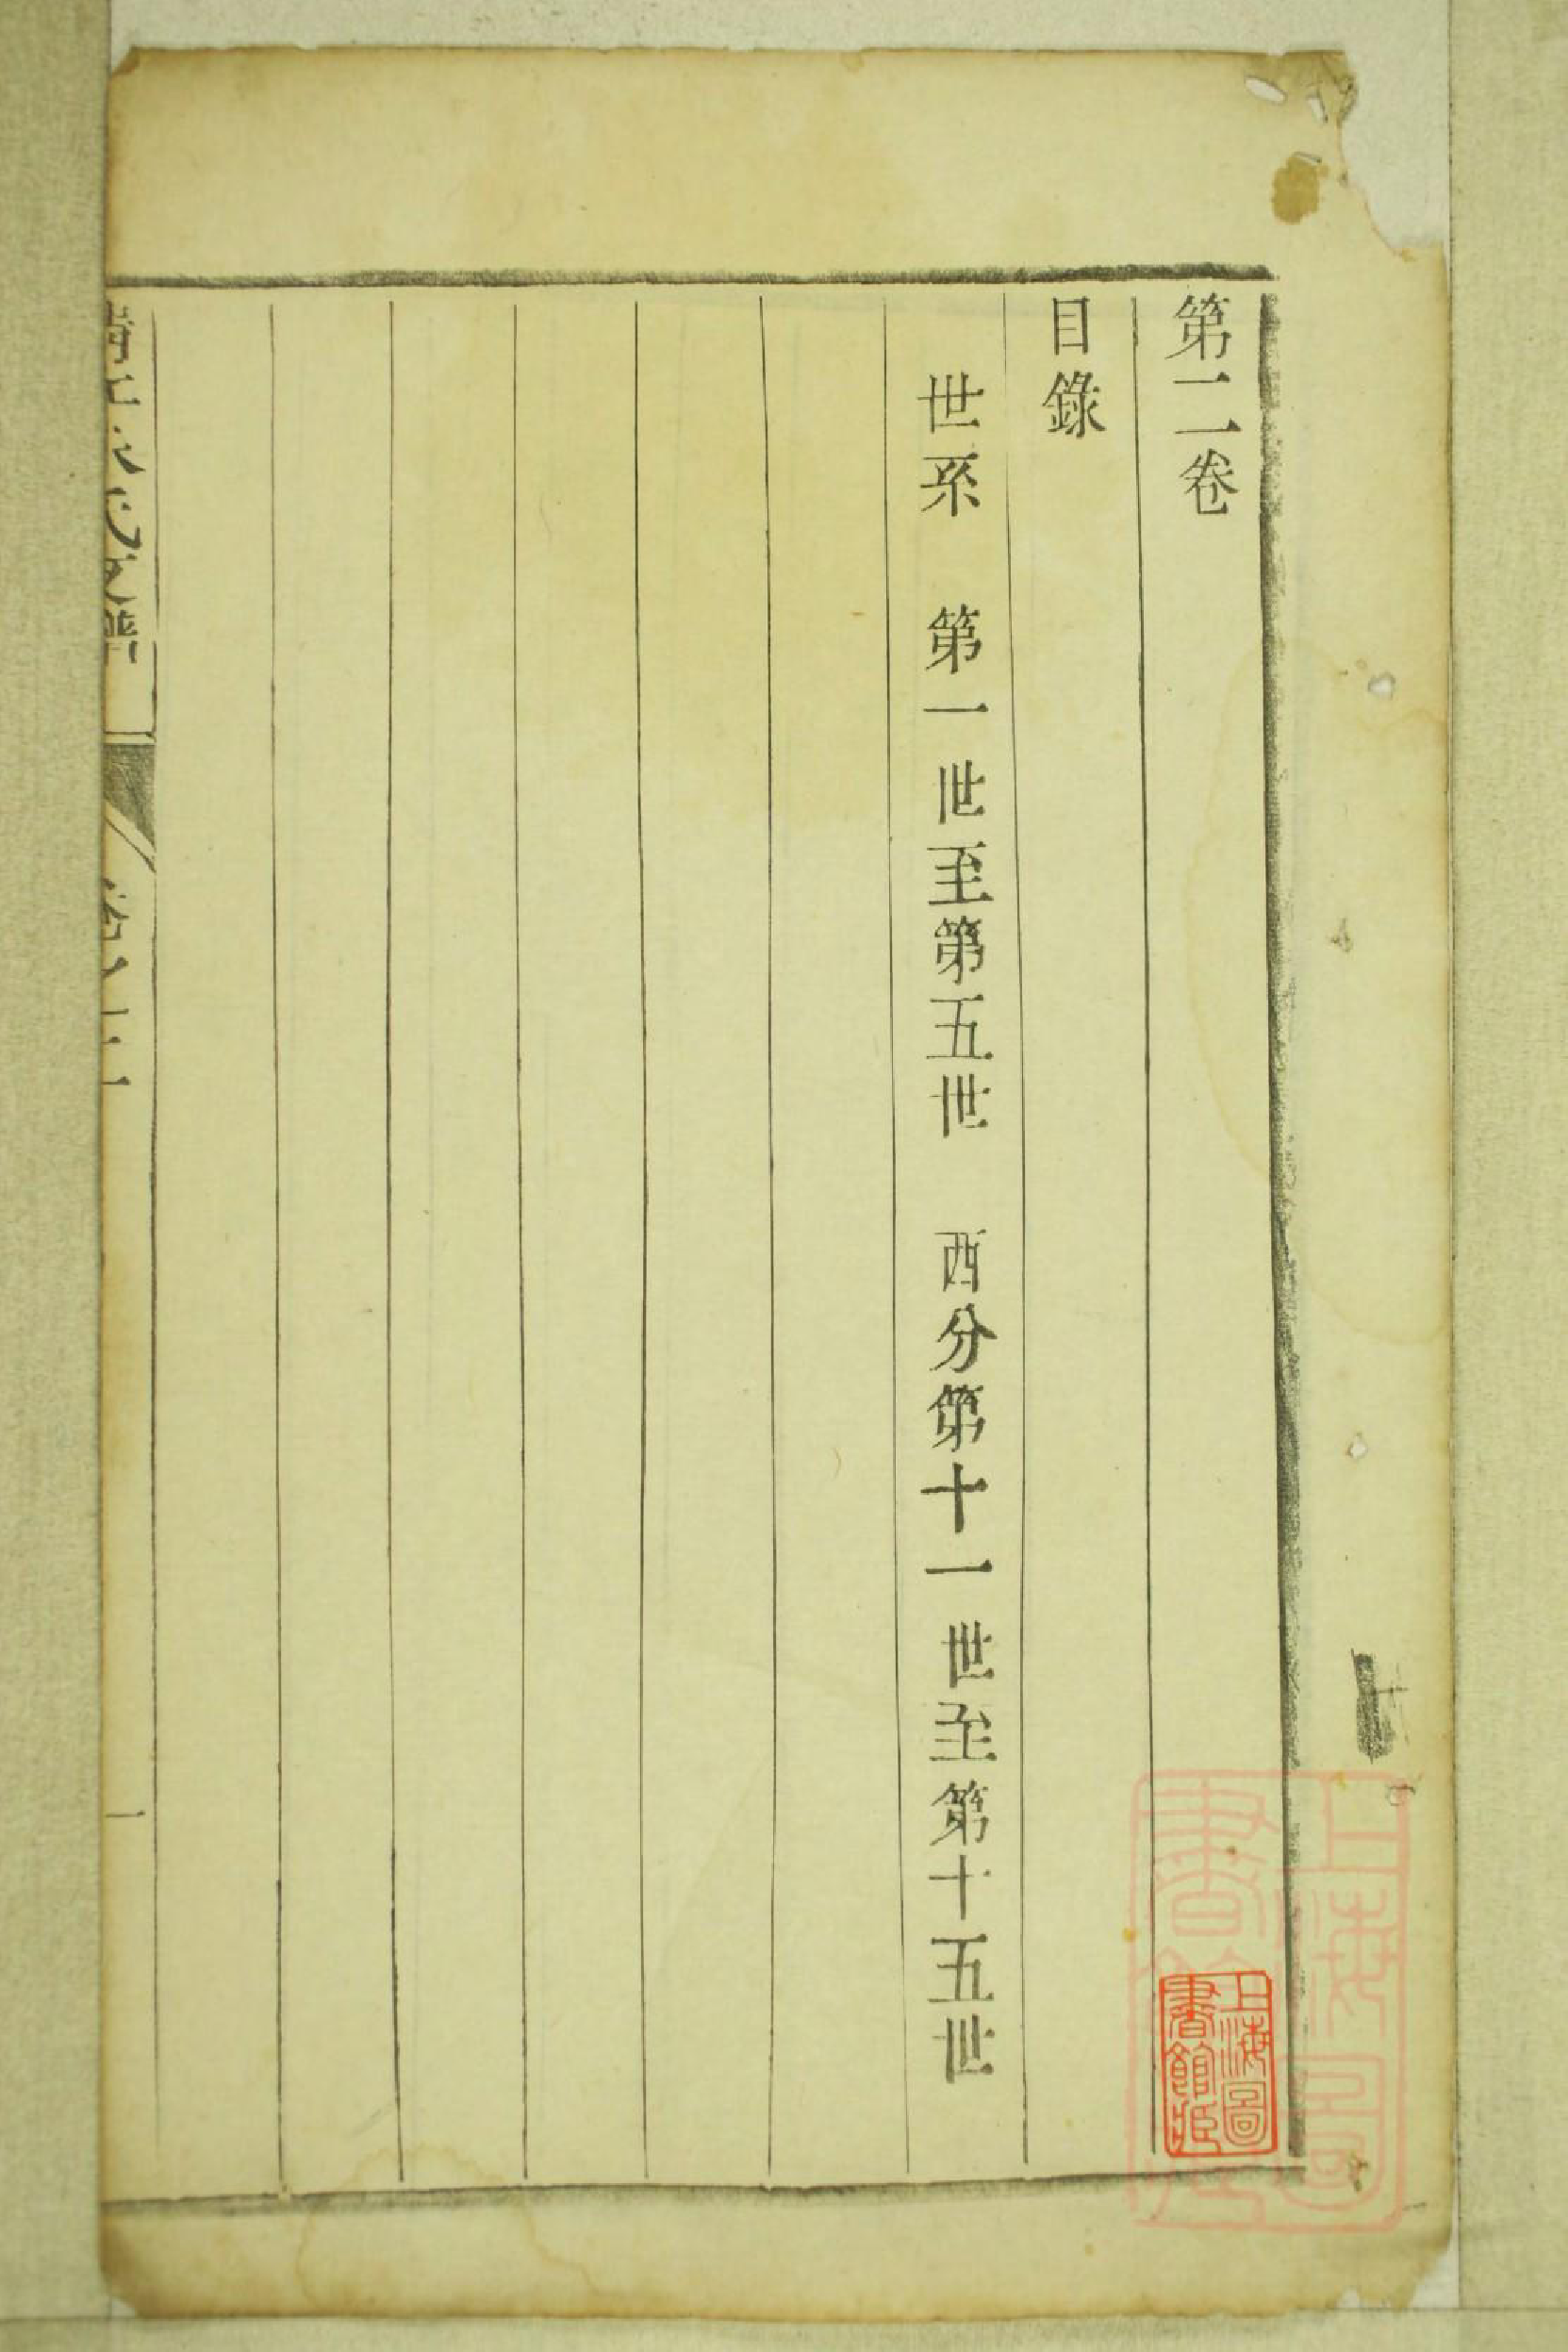 第二卷
目錄
世系　第一世至第五世　西分第十一世至第十五世
上海圖書館藏
上海圖書館藏
一